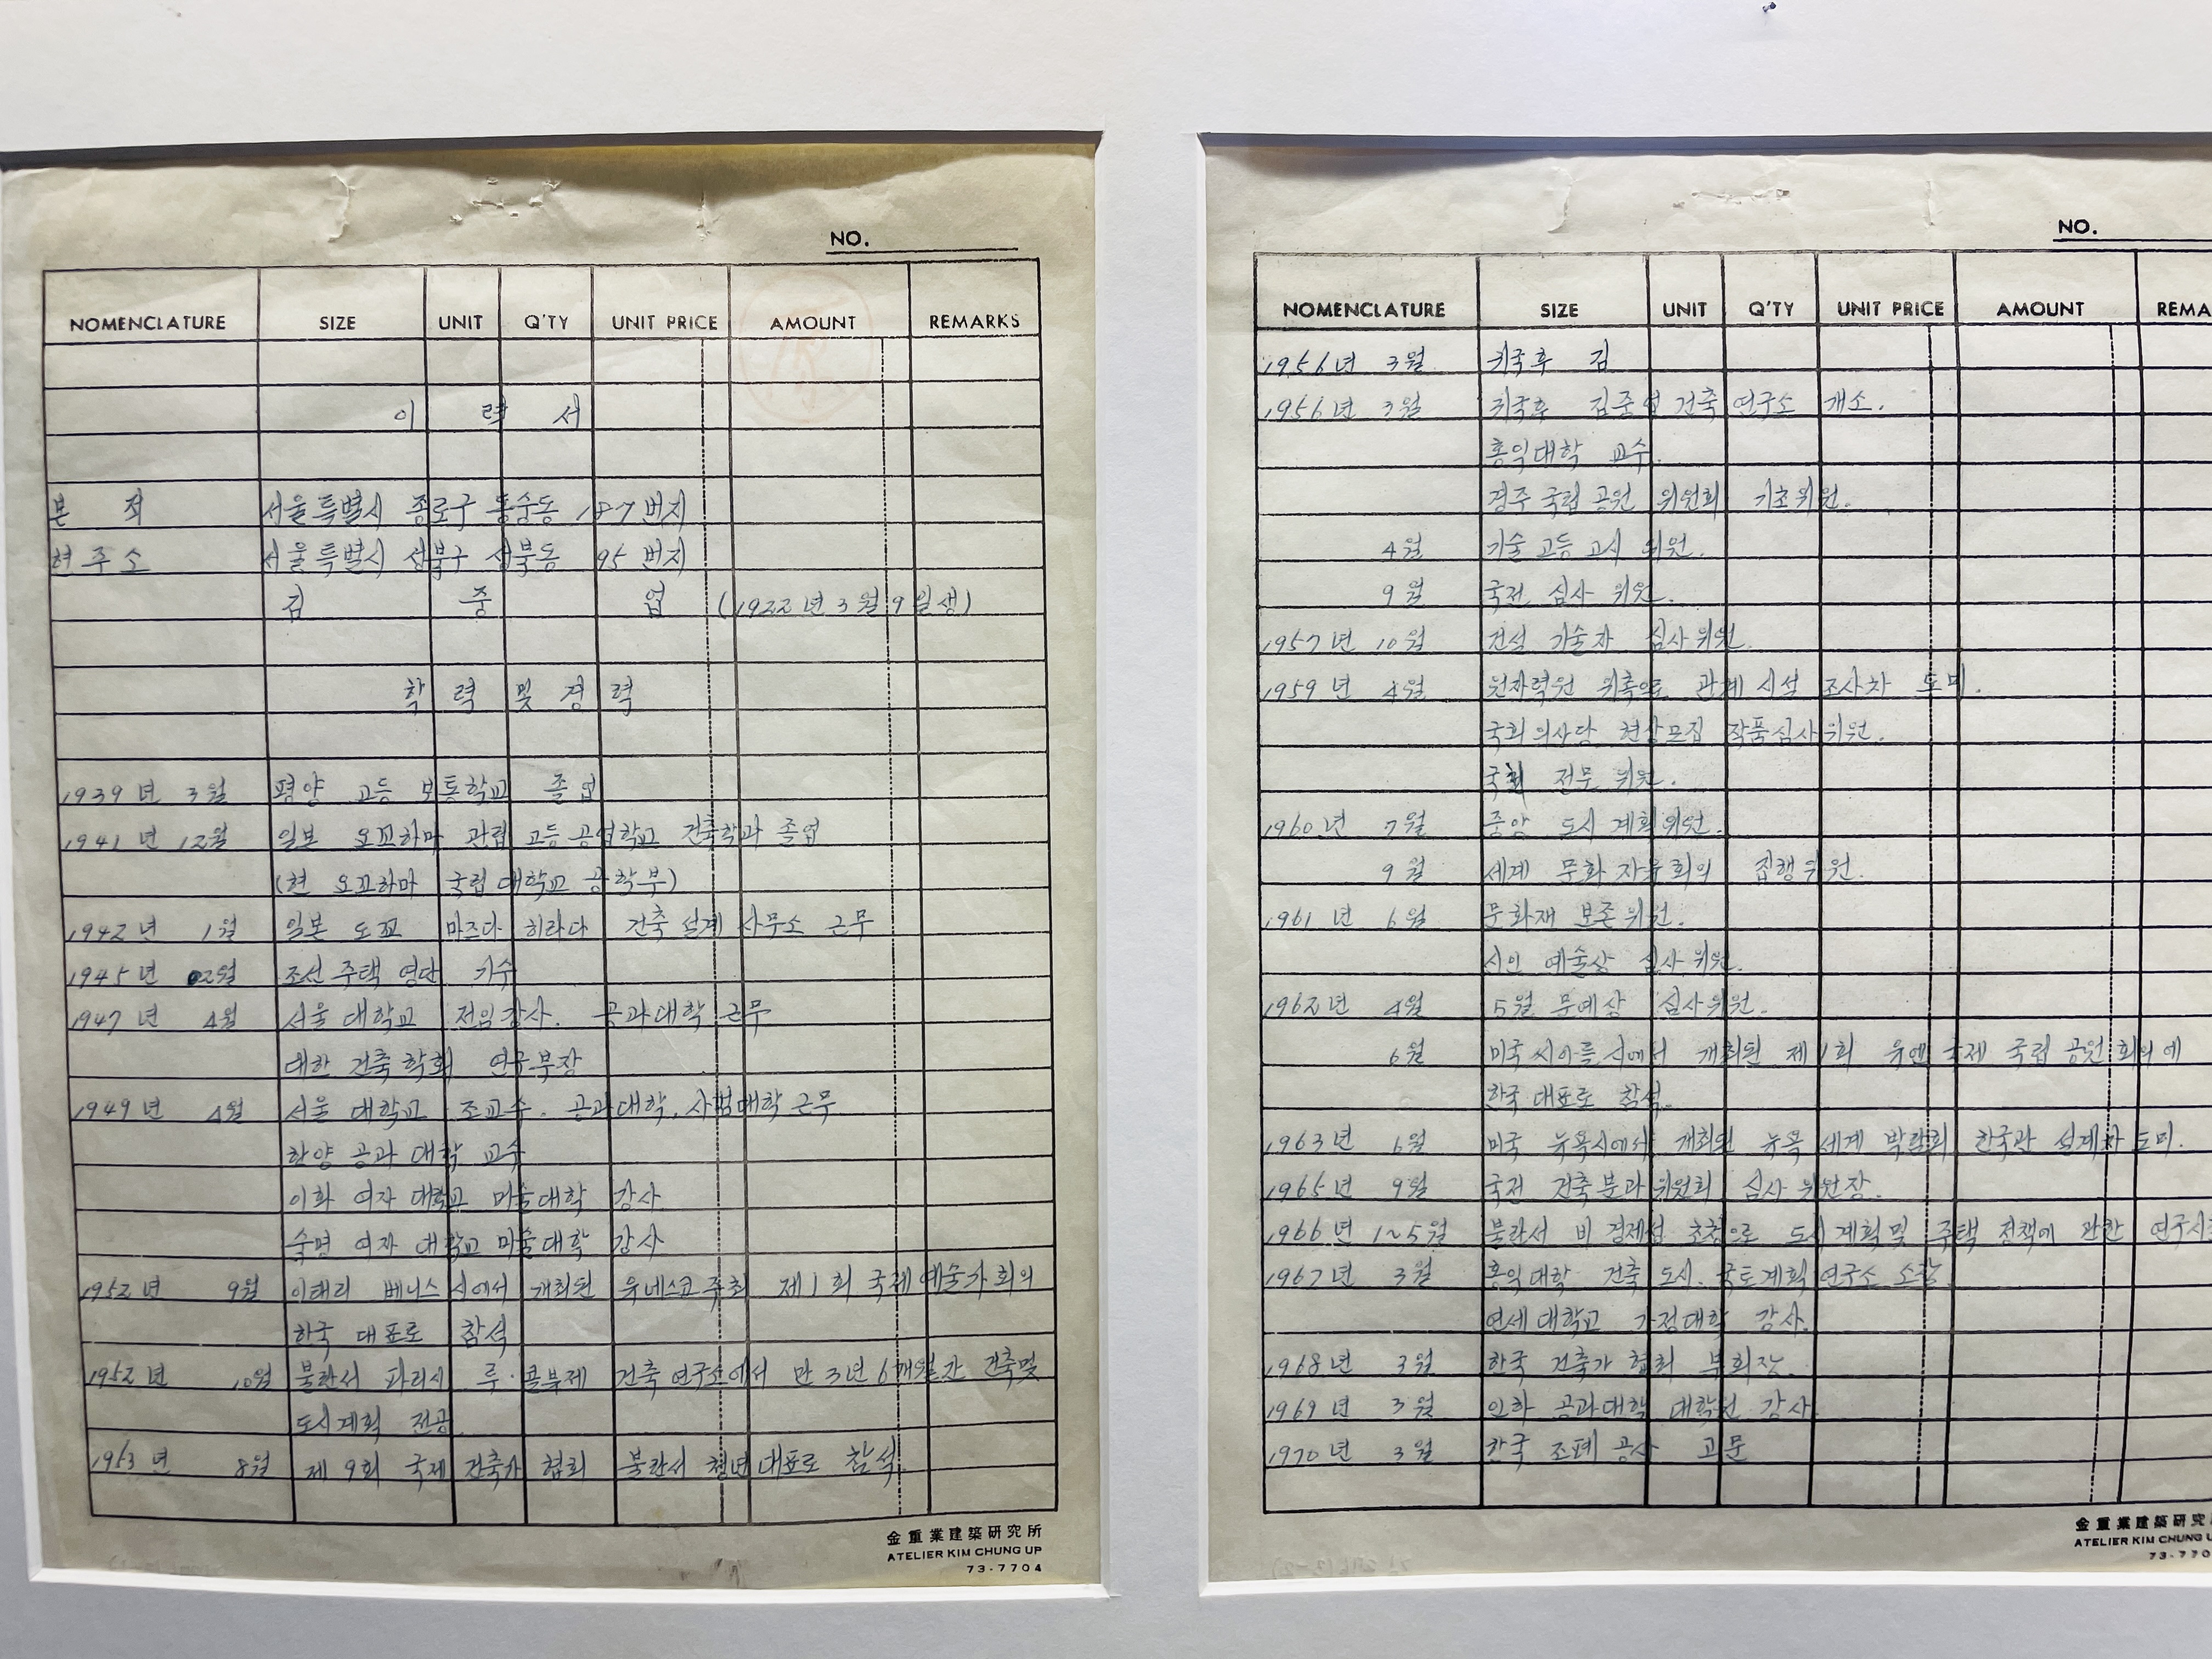 NO.
NOMENCLATURE SIZE UNIT Q'TY UNIT PRICE AMOUNT REMARKS
이 력 서
본 적 서울특별시 종로구 동숭동 187 번지
현주소 서울특별시 성북구 성북동 95 번지
김 중 업 (1922년 3월 9일생)
학 력 및 경 력
1939년 3월 평양 고등 보통학교 졸업
1941년 12월 일본 요꼬하마 관립 고등공업학교 건축학과 졸업
(현 요꼬하마 국립대학교 공학부)
1942년 1월 일본 도꾜 마즈다 히라다 건축 설계 사무소 근무
1945년 02월 조선 주택 영단 기수
1947년 4월 서울 대학교 전임강사. 공과대학 근무
대한 건축학회 연구부장
1949년 4월 서울 대학교 조교수. 공과대학, 사범대학 근무
한양 공과 대학 교수
이화 여자 대학교 미술대학 강사
숙명 여자 대학교 미술대학 강사
1952년 9월 이태리 베니스시에서 개최된 유네스코주최 제1회 국제예술가회의
한국 대표로 참석
1952년 10월 불란서 파리시 루·콜부제 건축연구소에서 만 3년 6개월간 건축및
도시계획 전공
1953년 8월 제 9회 국제 건축가 협회 불란서 청년대표로 참석.
金重業建築研究所
ATELIER KIM CHUNG UP
73-7704
NO.
NOMENCLATURE SIZE UNIT Q'TY UNIT PRICE AMOUNT REMA
1956년 3월 귀국후 김
1956년 3월 귀국후 김중업 건축 연구소 개소.
홍익대학 교수.
경주 국립공원 위원회 기초위원.
4월 기술고등고시 위원.
9월 국전 심사 위원.
1957년 10월 건설 기술자 심사위원.
1959년 4월 원자력원 위촉으로 관계시설 조사차 도미.
국회의사당 현상모집 작품심사위원.
국회 전문 위원.
1960년 7월 중앙 도시계획위원.
9월 세계 문화자유회의 집행위원.
1961년 6월 문화재 보존위원.
시인 예술상 심사위원.
1962년 4월 5월 문예상 심사위원.
6월 미국 씨아틀시에서 개최된 제1회 유엔 국제 국립공원회의에
한국 대표로 참석.
1963년 6월 미국 뉴욕시에서 개최될 뉴욕 세계 박람회 한국관 설계차 도미.
1965년 9월 국전 건축분과위원회 심사위원장.
1966년 1~5월 불란서 비 경제성 초청으로 도시계획및 주택 정책에 관한 연구시
1967년 3월 홍익대학 건축 도시. 국토계획연구소 소장.
연세대학교 가정대학 강사.
1968년 3월 한국 건축가 협회 부회장.
1969년 3월 인하 공과대학 대학원 강사
1970년 3월 한국 조폐공사 고문
金重業建築研究
ATELIER KIM CHUNG U
73-770